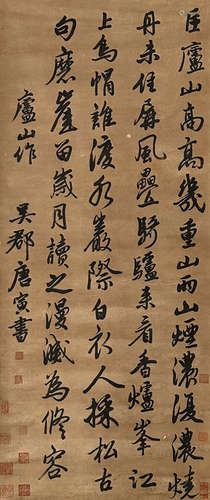 匡廬山高高幾重山雨山煙濃復濃燒
丹未住屏風疊騎驢來看香爐峯江
上烏帽誰渡水巖際白衣人採松古
句磨崖留歲月讀之漫滅為修容
廬山作
吳郡唐寅書